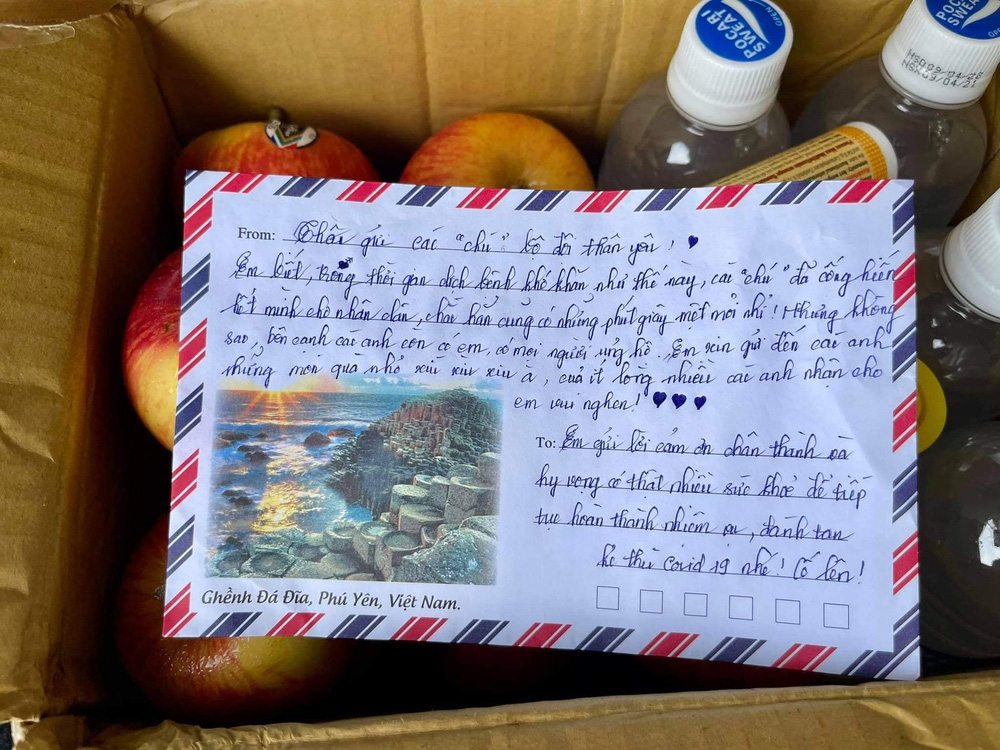 POCARI SWEAT
OPEN
POCARI SWEAT
HSD09/04/23
NSX09/04/21
From: Thân gửi các "chú" bộ đội thân yêu! ♥
Em biết, trong thời gian dịch bệnh khó khăn như thế này, các "chú" đã cống hiến
hết mình cho nhân dân, chắc hẳn cũng có những phút giây mệt mỏi nhỉ! Nhưng không
sao, bên cạnh các anh còn có em, có mọi người ủng hộ. Em xin gửi đến các anh
những món quà nhỏ xíu xiu xiu à, của ít lòng nhiều các anh nhận cho
em vui nghen! ♥♥♥
To: Em gửi lời cảm ơn chân thành và
hy vọng có thật nhiều sức khoẻ để tiếp
tục hoàn thành nhiệm vụ, đánh tan
kẻ thù covid 19 nhé! Cố lên!
Ghềnh Đá Đĩa, Phú Yên, Việt Nam.